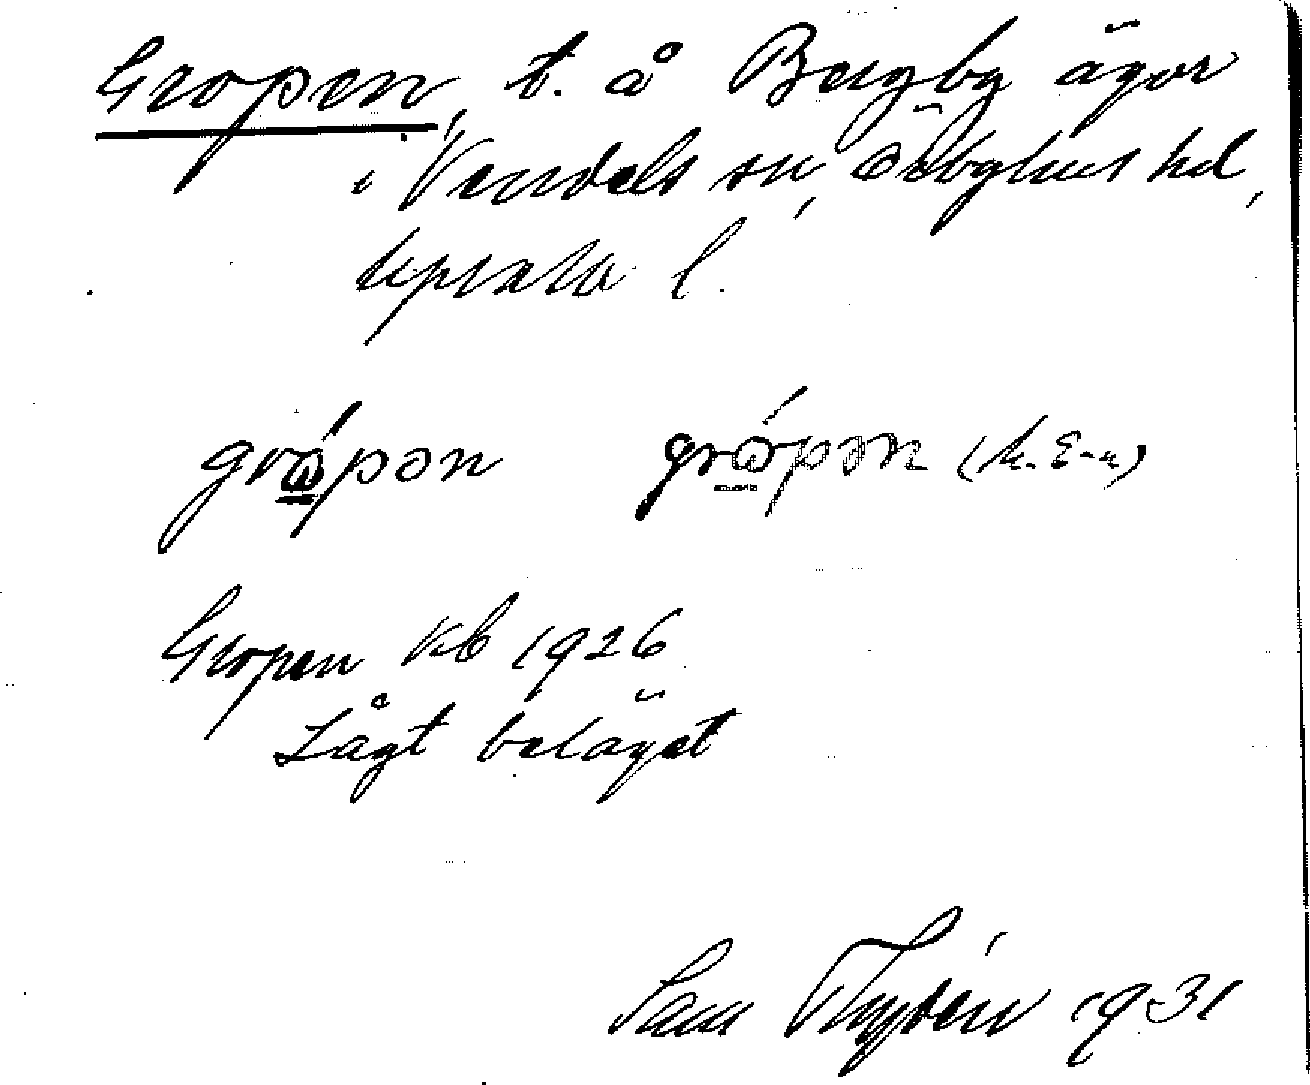 Gropen, t. å Bergby ägor
i Vendels sn, Örbyhus hd,
Uppsala l.
grópən grópən (K. E-n)
Gropen kb 1926
Lågt beläget
Sam Thydén 1931